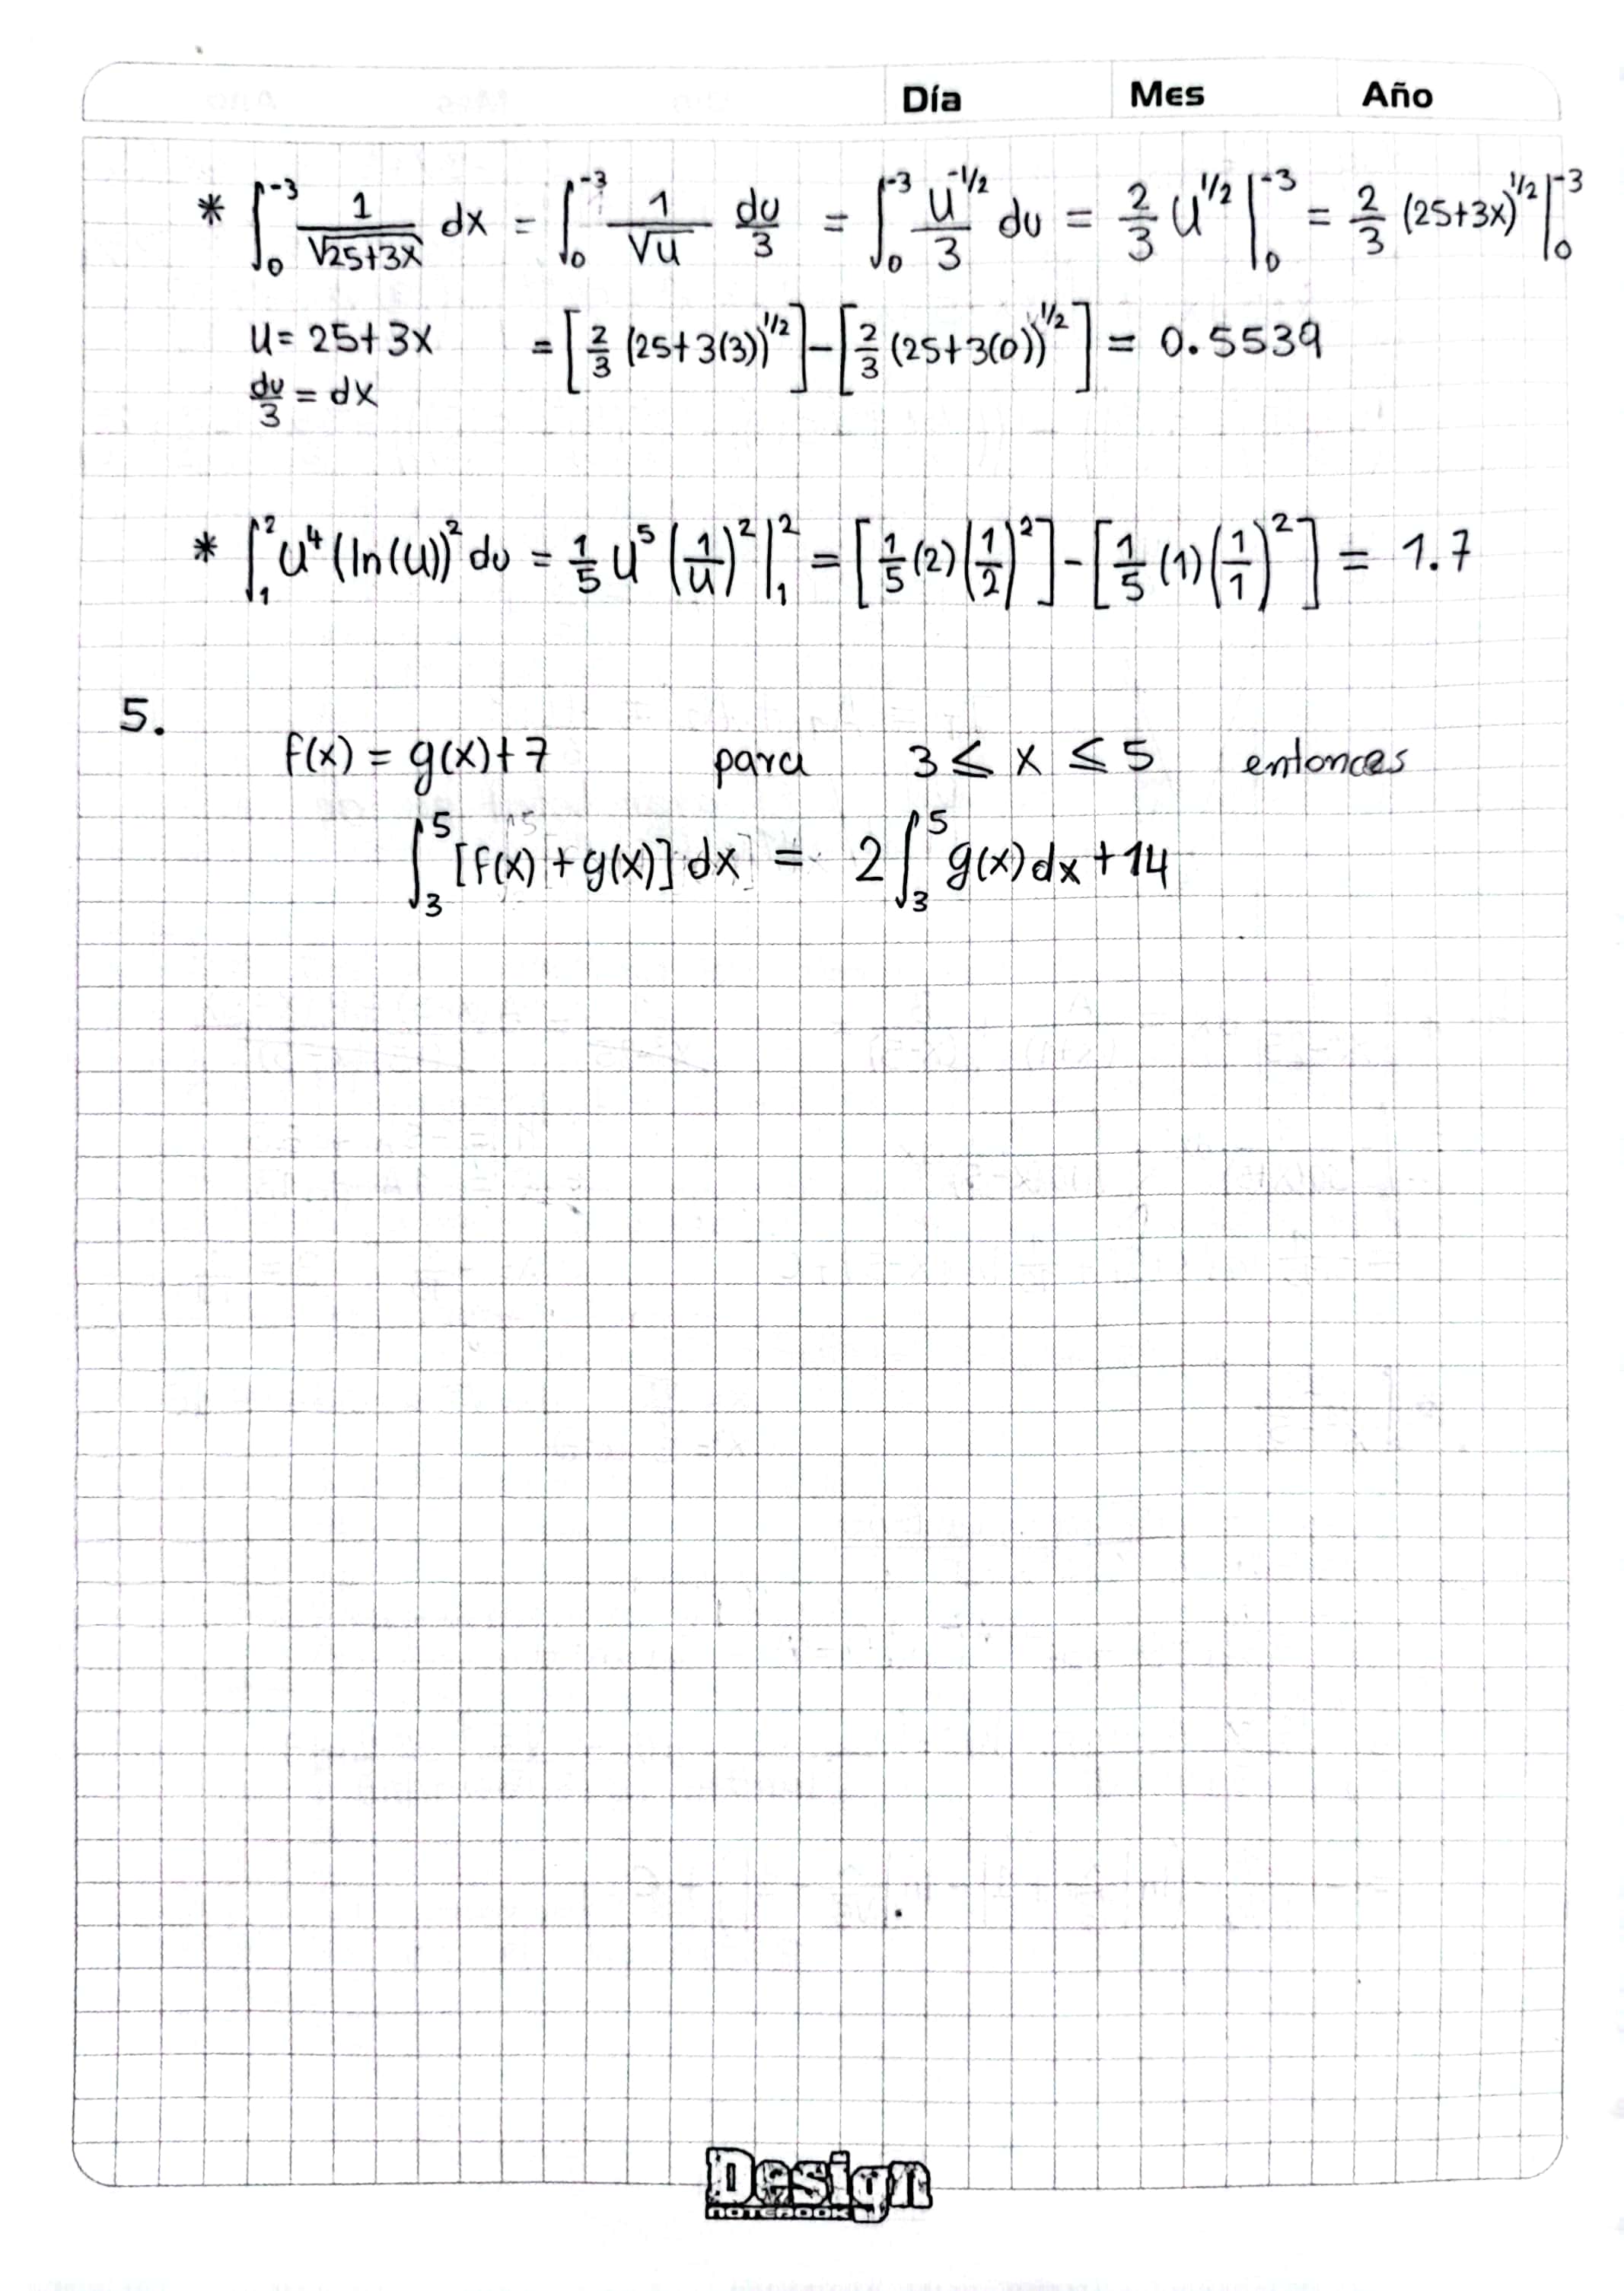 Día Mes Año
* ∫₀⁻³ 1/√(25+3x) dx = ∫₀⁻³ 1/√u du/3 = ∫₀⁻³ u^(-1/2)/3 du = 2/3 u^(1/2) |₀⁻³ = 2/3 (25+3x)^(1/2) |₀⁻³
u = 25+3x = [2/3 (25+3(3))^(1/2)] - [2/3 (25+3(0))^(1/2)] = 0.5539
du/3 = dx
* ∫₁² u⁴ (ln(u))² du = 1/5 u⁵ (1/u)² |₁² = [1/5 (2) (1/2)²] - [1/5 (1) (1/1)²] = 1.7
5.
f(x) = g(x)+7 para 3 ≤ x ≤ 5 entonces
∫₃⁵ [f(x) + g(x)] dx = 2 ∫₃⁵ g(x) dx + 14
Design
NOTEBOOK